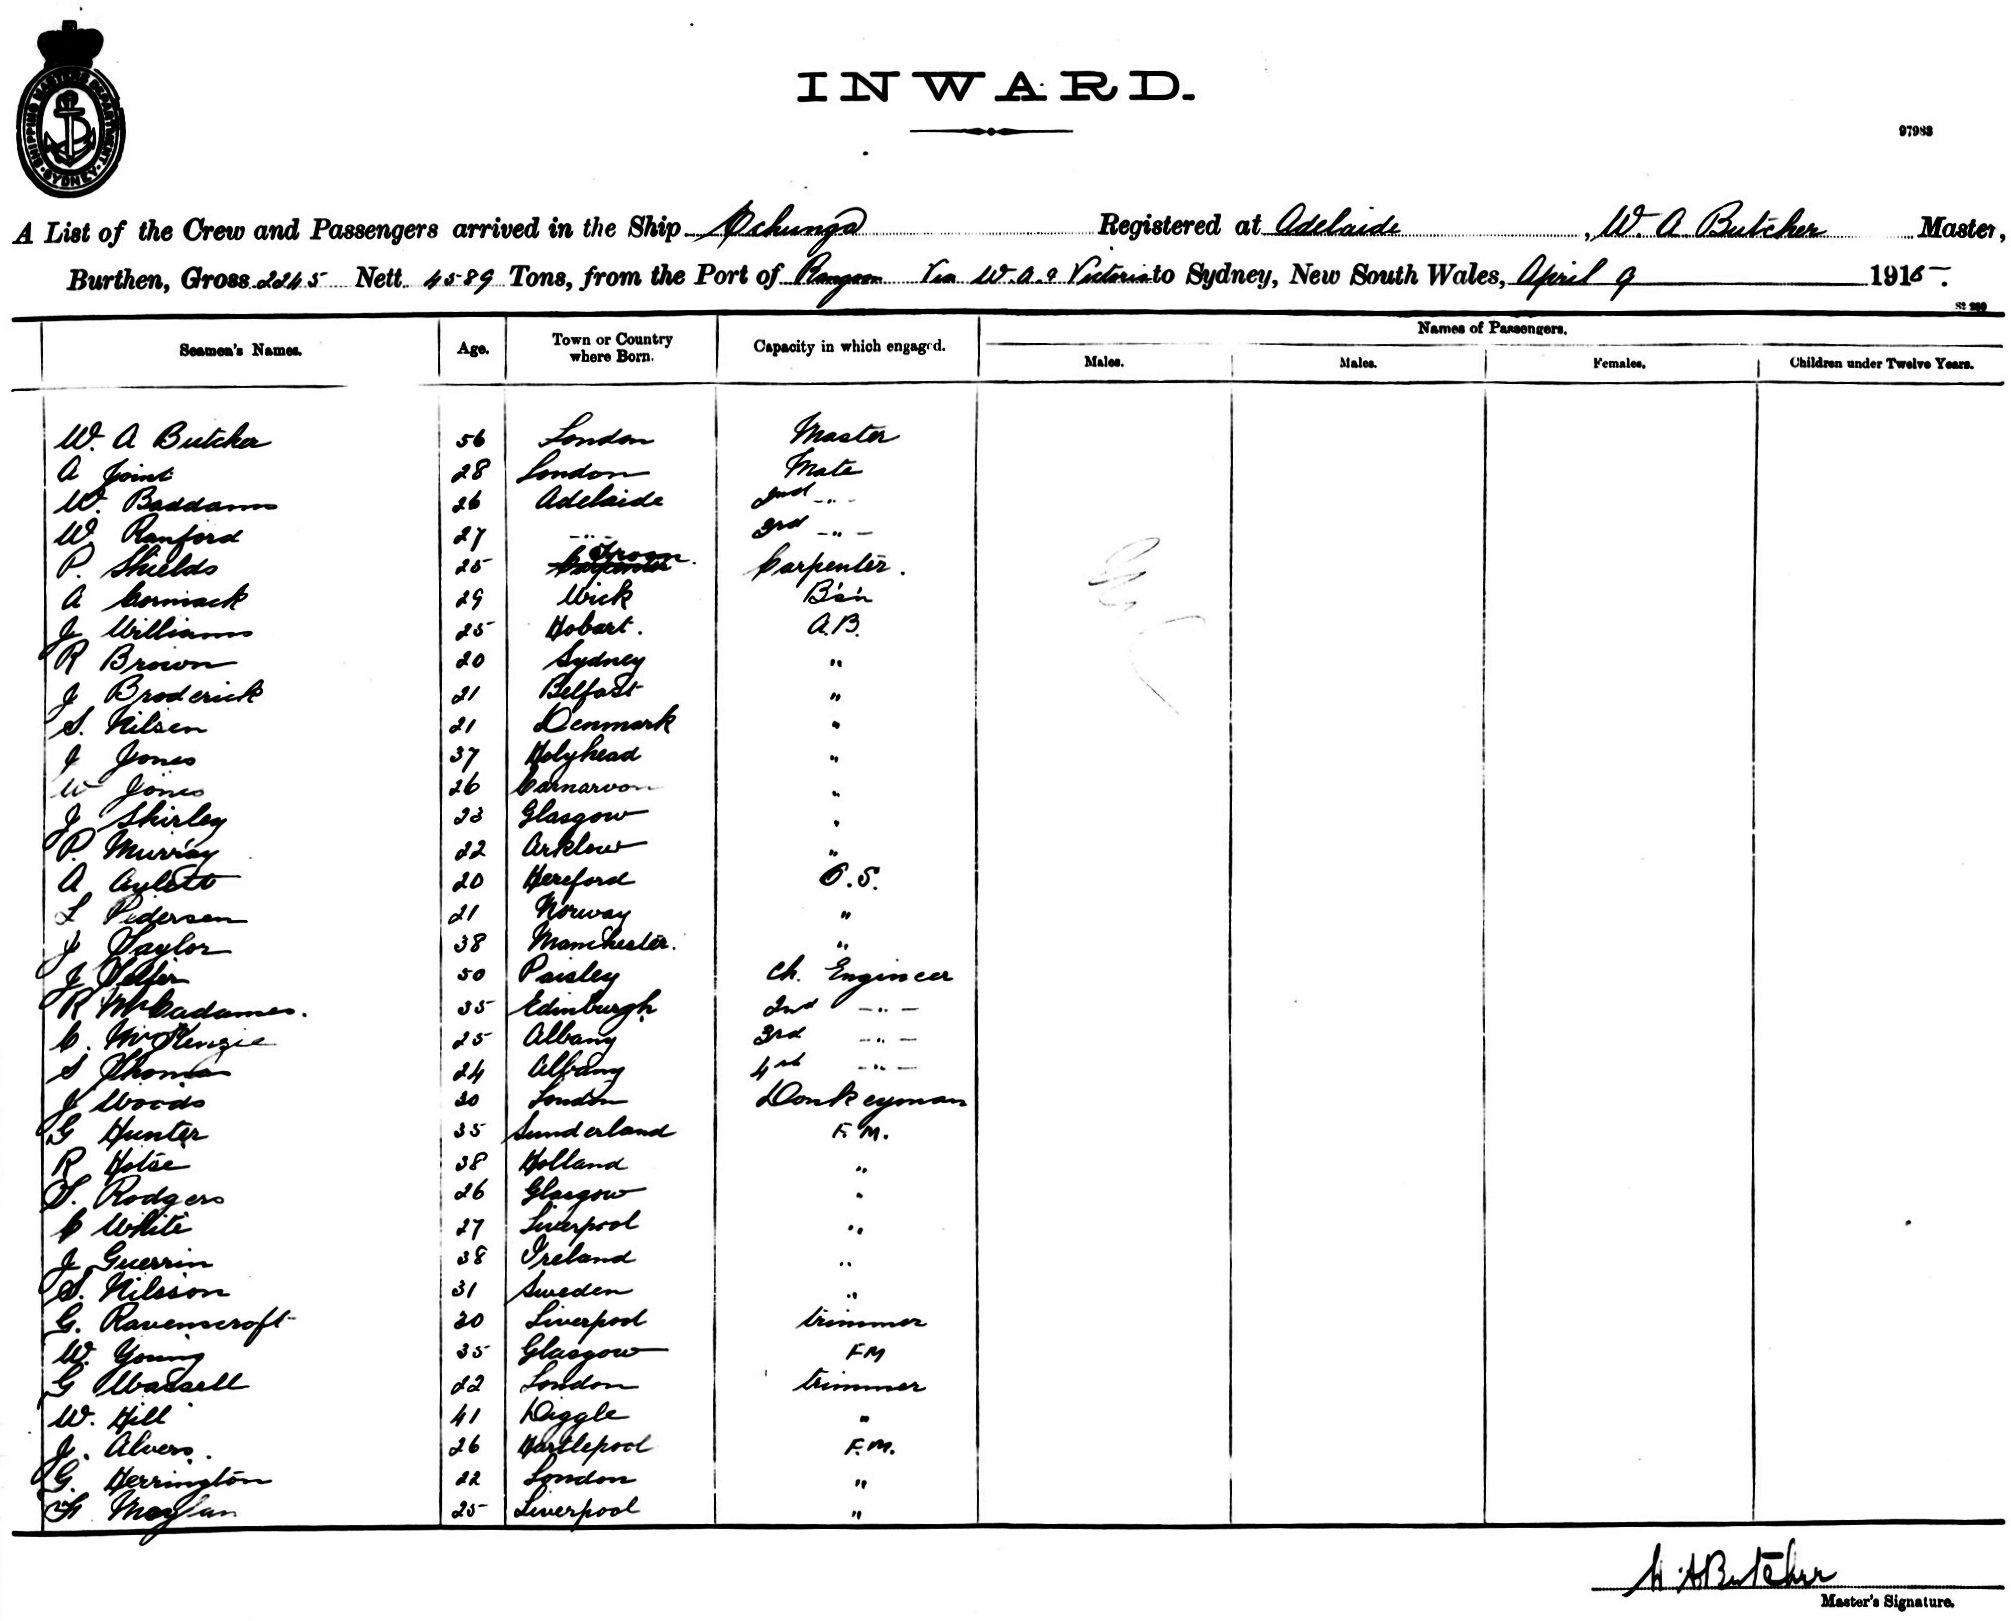 SHIPPING MASTERS DEPARTMENT SYDNEY
INWARD.
97983
A List of the Crew and Passengers arrived in the Ship Echunga Registered at Adelaide, W. A. Butcher Master,
Burthen, Gross 2245 Nett 4589 Tons, from the Port of Rangoon Via W.A. & Victoria to Sydney, New South Wales, April 9 1915.
Seamen's Names. Age. Town or Country where Born. Capacity in which engaged. Names of Passengers.
Males. Males. Females. Children under Twelve Years.
W. A Butcher 56 London Master
A Joint 28 London Mate
W. Baddams 26 Adelaide 2nd -"-
W Ranford 27 -"- 3rd -"-
P. Shields 25 Troon Carpenter.
A Cormack 29 Wick B's'n
J Williams 25 Hobart. A.B.
R Brown 20 Sydney "
J Broderick 21 Belfast "
S. Nilsen 21 Denmark "
J Jones 37 Holyhead "
W Jones 26 Carnarvon "
J Shirley 23 Glasgow "
P. Murray 22 Arklow "
A Aylett 20 Hereford O.S.
L Pedersen 21 Norway "
J Taylor 38 Manchester. "
J Telfer 50 Paisley Ch. Engineer
R McCadames. 35 Edinburgh 2nd -"-
C. McKenzie 25 Albany 3rd -"-
S Thomas 24 Albany 4th -"-
J Woods 30 London Donkeyman
G Hunter 35 Sunderland F.M.
R Hotse 38 Holland "
S. Rodgers 26 Glasgow "
C White 27 Liverpool "
J Guerrin 38 Ireland "
S. Nilsson 31 Sweden "
G. Ravenscroft 30 Liverpool trimmer
W. Young 35 Glasgow FM
G Wassell 22 London trimmer
W. Hill 41 Diggle "
J. Alvers. 26 Hartlepool F.M.
G. Herrington 22 London "
25 Liverpool "
W. A Butcher
Master's Signature.